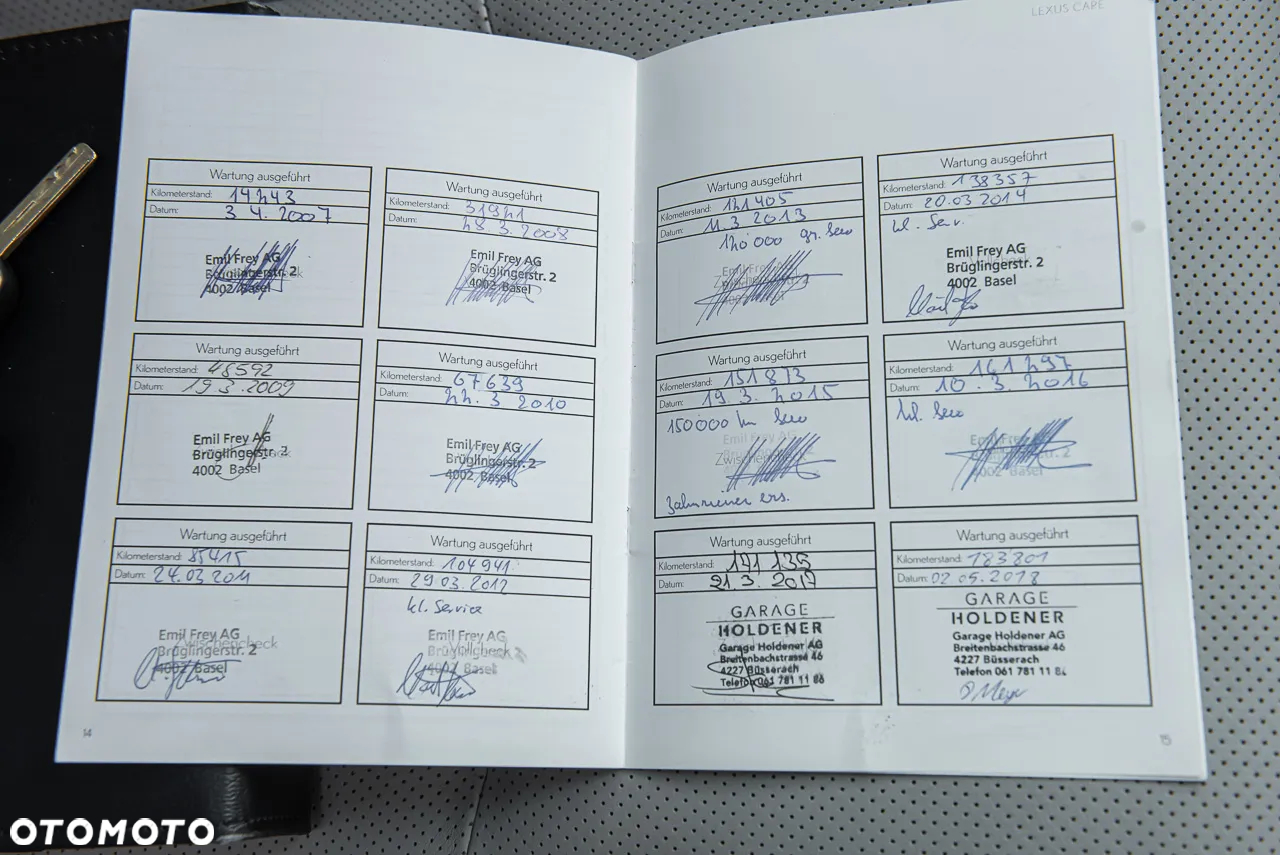 LEXUS CARE
Wartung ausgeführt
Kilometerstand: 14243
Datum: 3 4. 2007
Emil Frey AG
Brüglingerstr. 2
4002 Basel
Wartung ausgeführt
Kilometerstand:
Datum: 28. 3. 2008
Emil Frey AG
Brüglingerstr. 2
4002 Basel
Wartung ausgeführt
Kilometerstand: 48592
Datum: 19 3. 2009
Emil Frey AG
Brüglingerstr. 2
4002 Basel
Wartung ausgeführt
Kilometerstand: 67639
Datum: 22. 3 2010
Emil Frey AG
Brüglingerstr. 2
4002 Basel
Wartung ausgeführt
Kilometerstand: 85415
Datum: 24.03 2011
Emil Frey AG
Zwischencheck
Brüglingerstr. 2
4002 Basel
Wartung ausgeführt
Kilometerstand: 104941
Datum: 29 03. 2012
kl. Service
Emil Frey AG
Brüglingerstr. 2
4002 Basel
14
Wartung ausgeführt
Kilometerstand: 121405
Datum: 11. 3 2013
120 000 gr. Serv
Emil Frey
Wartung ausgeführt
Kilometerstand: 138357
Datum: 20.03 2014
kl. Serv.
Emil Frey AG
Brüglingerstr. 2
4002 Basel
Wartung ausgeführt
Kilometerstand: 151873
Datum: 19. 3. 2015
150 000 km Serv
Emil Frey AG
Zahnriemen ers.
Wartung ausgeführt
Kilometerstand: 161297
Datum: 10. 3. 2016
kl. Serv
Emil Frey AG
4002 Basel
Wartung ausgeführt
Kilometerstand: 171 135
Datum: 21. 3. 2017
GARAGE
HOLDENER
Garage Holdener AG
Breitenbachstrasse 46
4227 Büsserach
Telefon 061 781 11 86
Wartung ausgeführt
Kilometerstand: 183801
Datum: 02 05. 2018
GARAGE
HOLDENER
Garage Holdener AG
Breitenbachstrasse 46
4227 Büsserach
Telefon 061 781 11 86
15
OTOMOTO